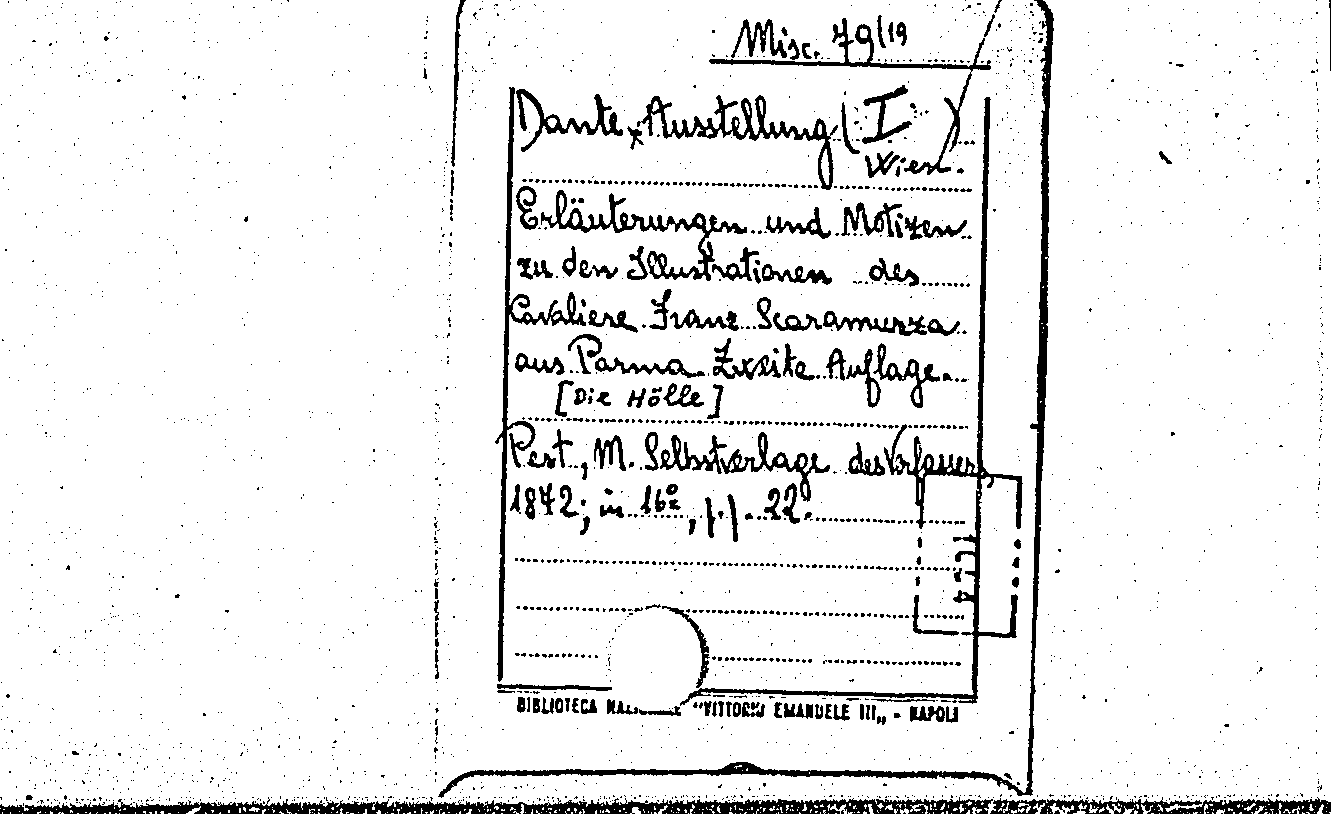 Misc. 79/19
Dante-Ausstellung (I)
Wien.
Erläuterungen und Notizen
zu den Illustrationen des
Cavaliere Franz Scaramuzza
aus Parma Zweite Auflage.
[Die Hölle]
Pest, M. Selbstverlage des Verfassers,
1872; in 16º, pp. 22.
BIBLIOTECA NAZIONALE "VITTORIO EMANUELE III" - NAPOLI